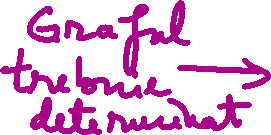 Graful
trebuie
determinat